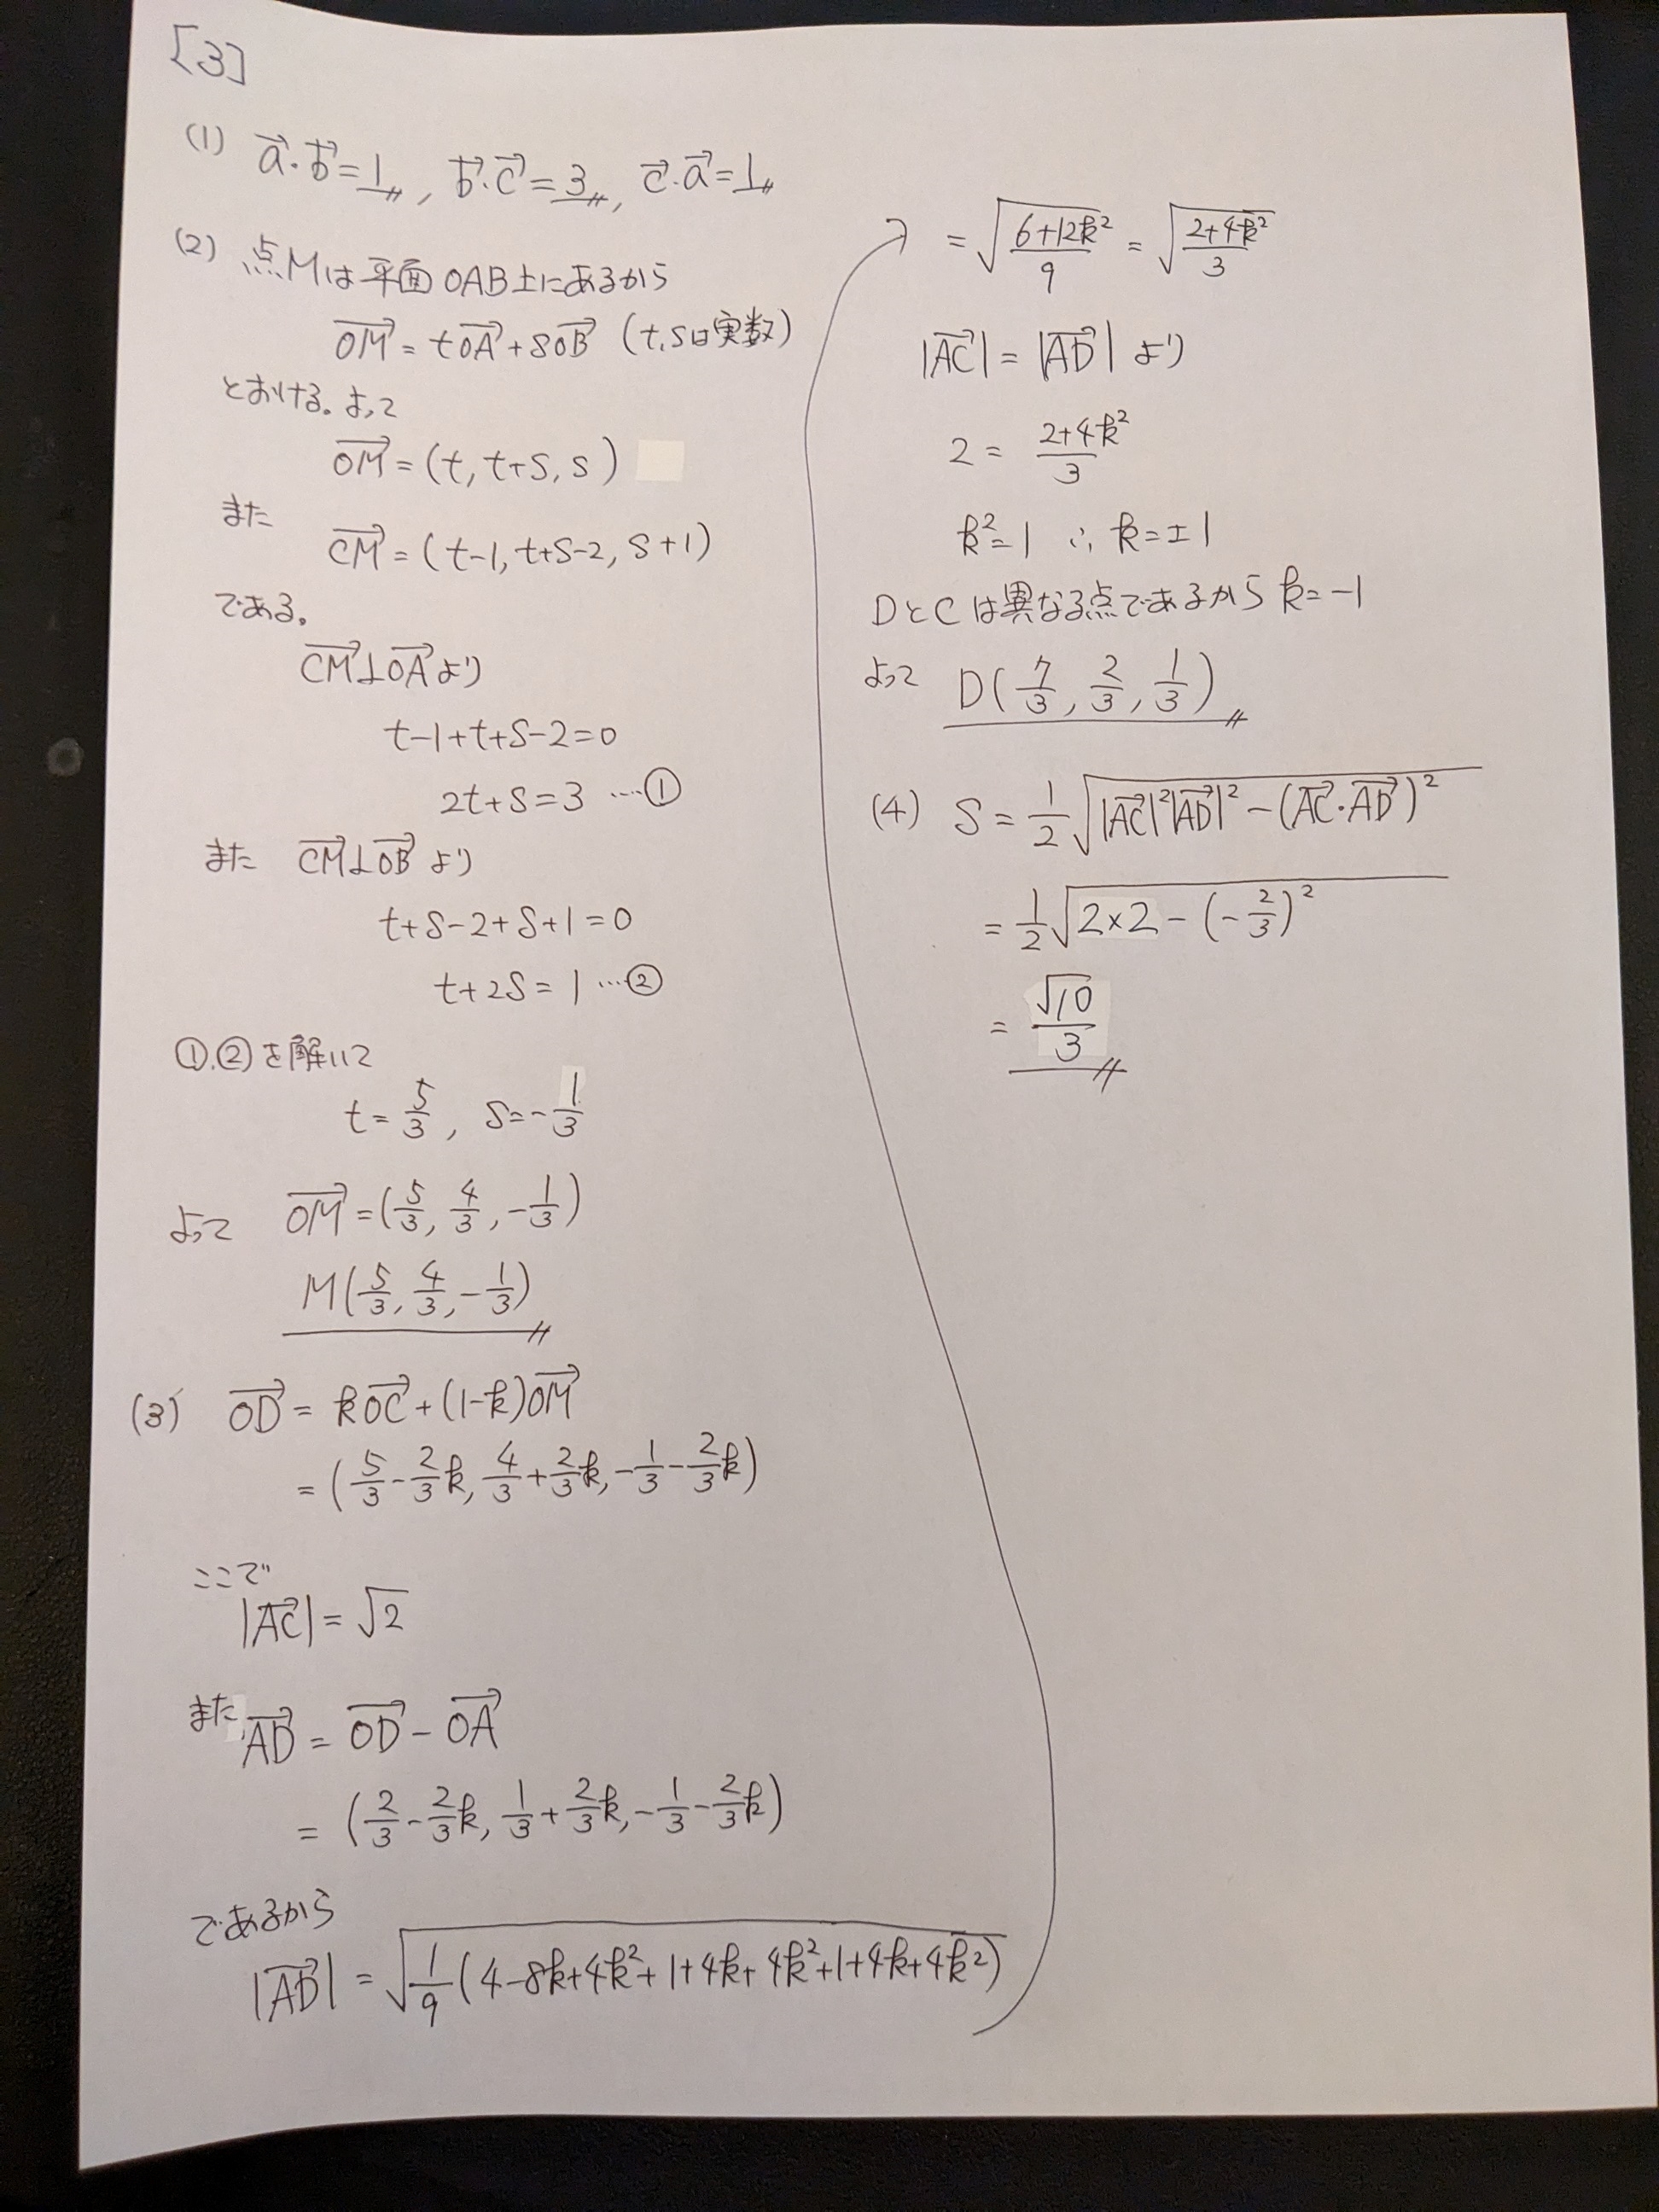 [3]
(1) a⃗・b⃗=1, b⃗・c⃗=3, c⃗・a⃗=1
(2) 点Mは平面OAB上にあるから
OM⃗=tOA⃗+sOB⃗ (t,sは実数)
とおける。よって
OM⃗=(t, t+s, s)
また
CM⃗=(t-1, t+s-2, s+1)
である。
CM⃗⊥OA⃗より
t-1+t+s-2=0
2t+s=3 …①
また CM⃗⊥OB⃗ より
t+s-2+s+1=0
t+2s=1 …②
①.②を解いて
t=5/3, s=-1/3
よって OM⃗=(5/3, 4/3, -1/3)
M(5/3, 4/3, -1/3)
(3) OD⃗=kOC⃗+(1-k)OM⃗
=(5/3-2/3k, 4/3+2/3k, -1/3-2/3k)
ここで
|AC⃗|=√2
また AD⃗=OD⃗-OA⃗
=(2/3-2/3k, 1/3+2/3k, -1/3-2/3k)
であるから
|AD⃗|=√(1/9(4-8k+4k²+1+4k+4k²+1+4k+4k²))
=√((6+12k²)/9)=√((2+4k²)/3)
|AC⃗|=|AD⃗| より
2=(2+4k²)/3
k²=1 ∴k=±1
DとCは異なる点であるから k=-1
よって D(7/3, 2/3, 1/3)
(4) S=1/2√(|AC⃗|²|AD⃗|²-(AC⃗・AD⃗)²)
=1/2√(2×2-(-2/3)²)
=√10/3